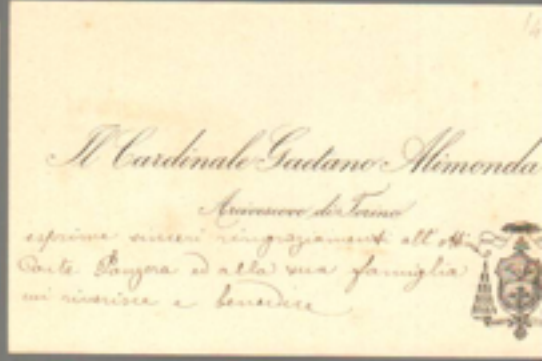 Il Cardinale Gaetano Alimonda
Arcivescovo di Torino
esprime sinceri ringraziamenti all'
Conte ed alla sua famiglia
riverisce e benedice